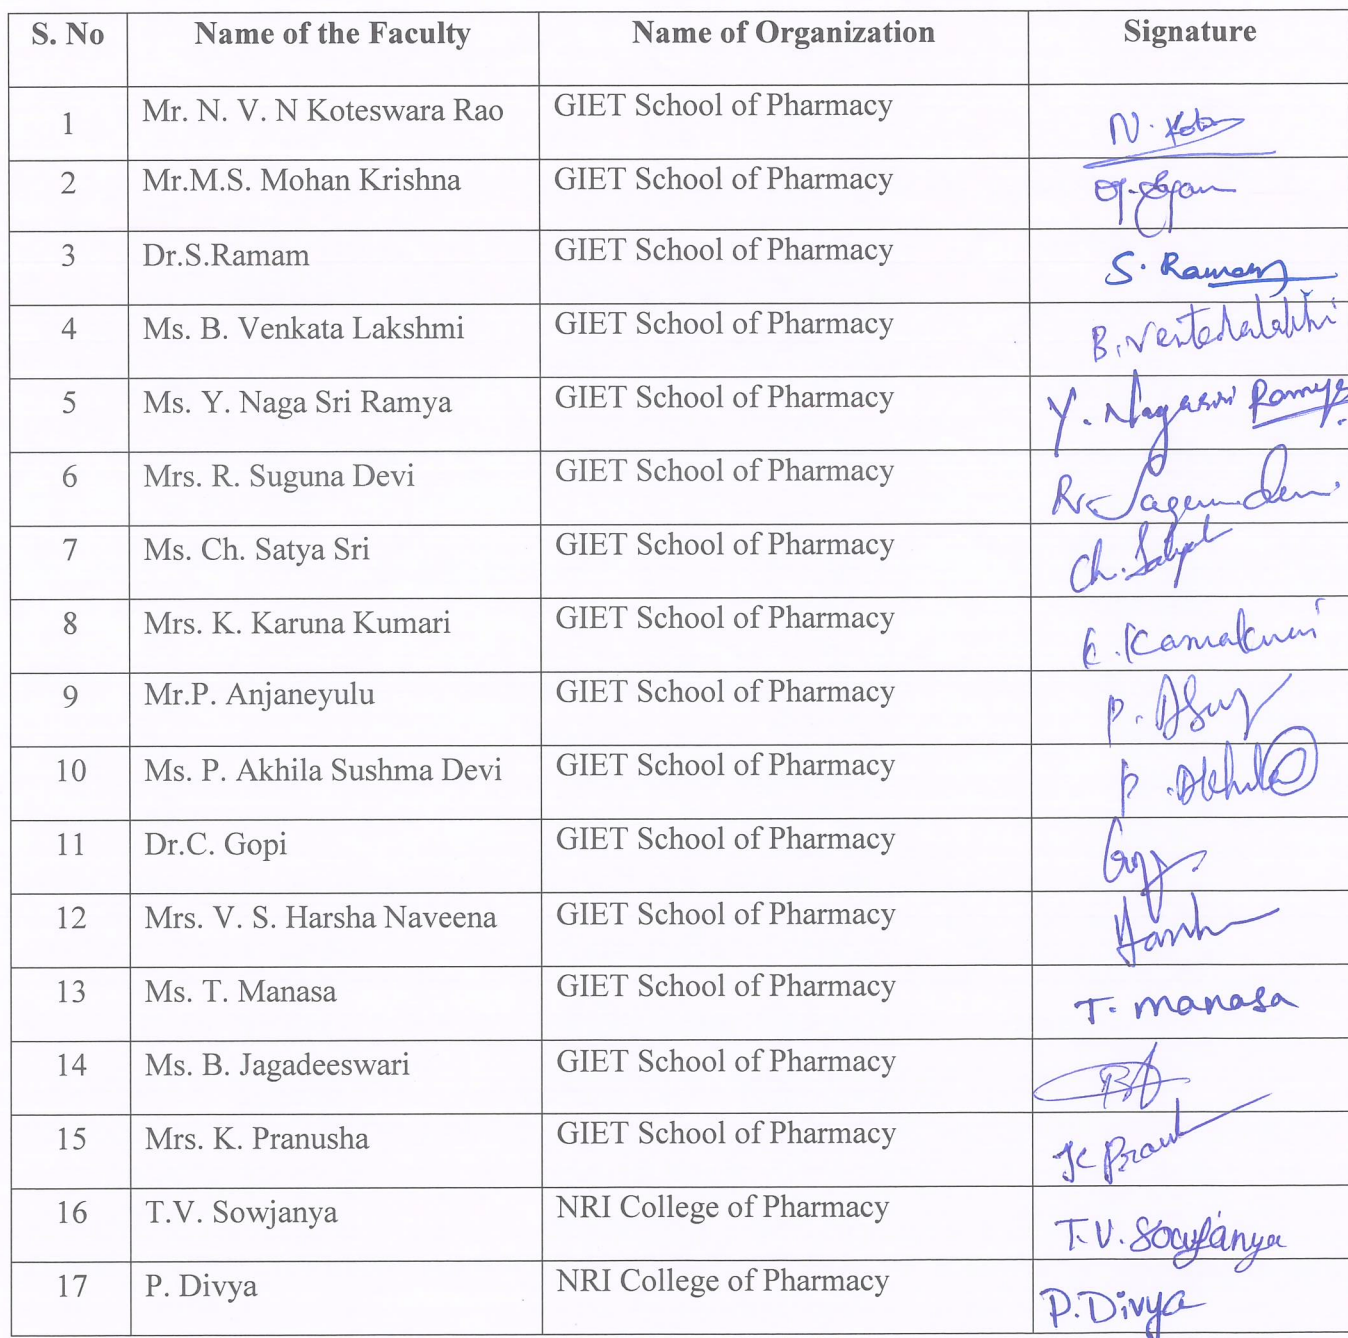 S. No Name of the Faculty Name of Organization Signature
1 Mr. N. V. N Koteswara Rao GIET School of Pharmacy N.
2 Mr.M.S. Mohan Krishna GIET School of Pharmacy
3 Dr.S.Ramam GIET School of Pharmacy S. Ramam
4 Ms. B. Venkata Lakshmi GIET School of Pharmacy B.
5 Ms. Y. Naga Sri Ramya GIET School of Pharmacy Y. Nagasri Ramya
6 Mrs. R. Suguna Devi GIET School of Pharmacy R.
7 Ms. Ch. Satya Sri GIET School of Pharmacy Ch.
8 Mrs. K. Karuna Kumari GIET School of Pharmacy
9 Mr.P. Anjaneyulu GIET School of Pharmacy P.
10 Ms. P. Akhila Sushma Devi GIET School of Pharmacy P. Akhila
11 Dr.C. Gopi GIET School of Pharmacy
12 Mrs. V. S. Harsha Naveena GIET School of Pharmacy
13 Ms. T. Manasa GIET School of Pharmacy T. manasa
14 Ms. B. Jagadeeswari GIET School of Pharmacy
15 Mrs. K. Pranusha GIET School of Pharmacy K
16 T.V. Sowjanya NRI College of Pharmacy T.V. Sowjanya
17 P. Divya NRI College of Pharmacy P.Divya